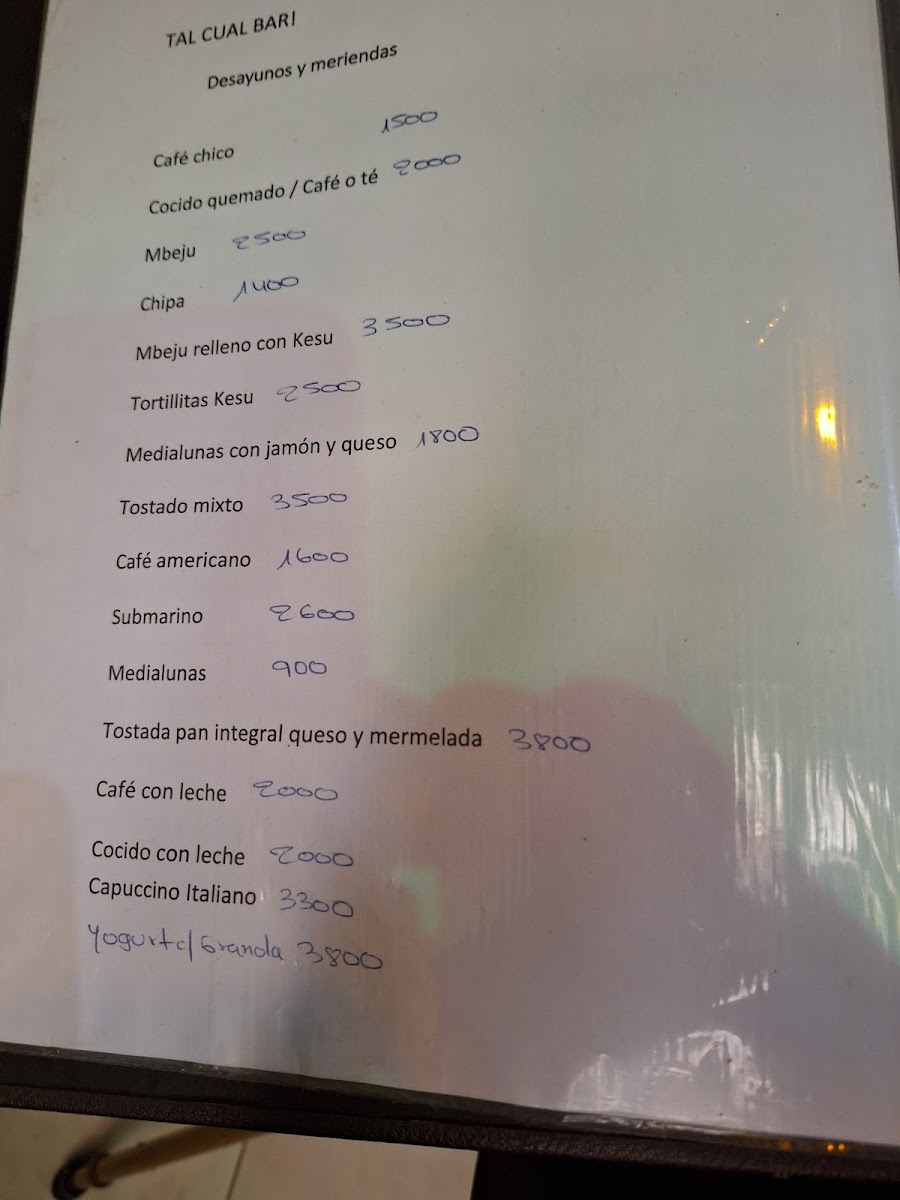 TAL CUAL BAR!
Desayunos y meriendas
Café chico 1500
Cocido quemado / Café o té 2000
Mbeju 2500
Chipa 1400
Mbeju relleno con Kesu 3500
Tortillitas Kesu 2500
Medialunas con jamón y queso 1800
Tostado mixto 3500
Café americano 1600
Submarino 2600
Medialunas 900
Tostada pan integral queso y mermelada 3800
Café con leche 2000
Cocido con leche 2000
Capuccino Italiano 3300
Yogurt c/ Granola 3800